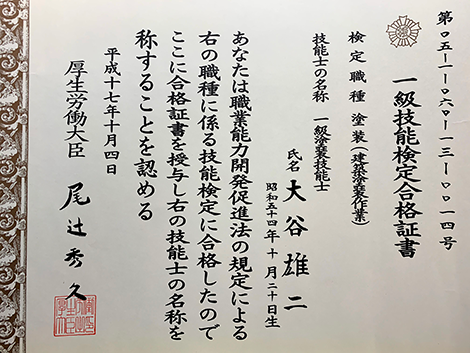 第０５－１－０６０－１３－００１４号
一級技能検定合格証書
検定職種 塗装（建築塗装作業）
技能士の名称 一級塗装技能士
氏名 大谷雄二
昭和五十四年十月二十日生
あなたは職業能力開発促進法の規定による
右の職種に係る技能検定に合格したので
ここに合格証書を授与し右の技能士の名称を
称することを認める
平成十七年十月四日
厚生労働大臣 尾辻秀久